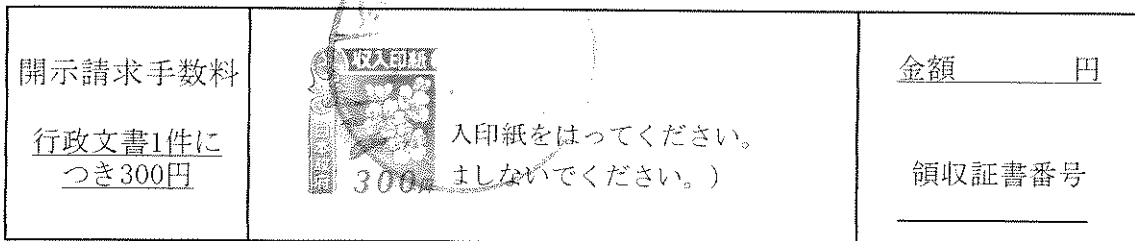 開示請求手数料
行政文書1件に
つき300円
収入印紙
日本政府
300円
入印紙をはってください。
ましないでください。)
金額 円
領収証書番号